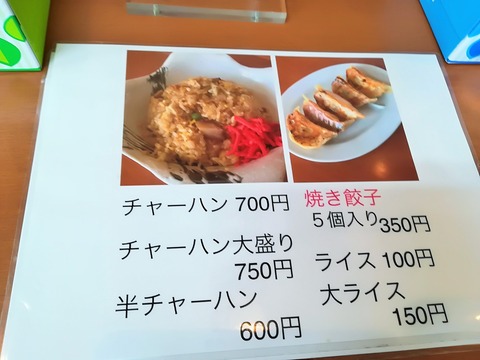 チャーハン 700円
チャーハン大盛り
750円
半チャーハン
600円
焼き餃子
5個入り 350円
ライス 100円
大ライス
150円